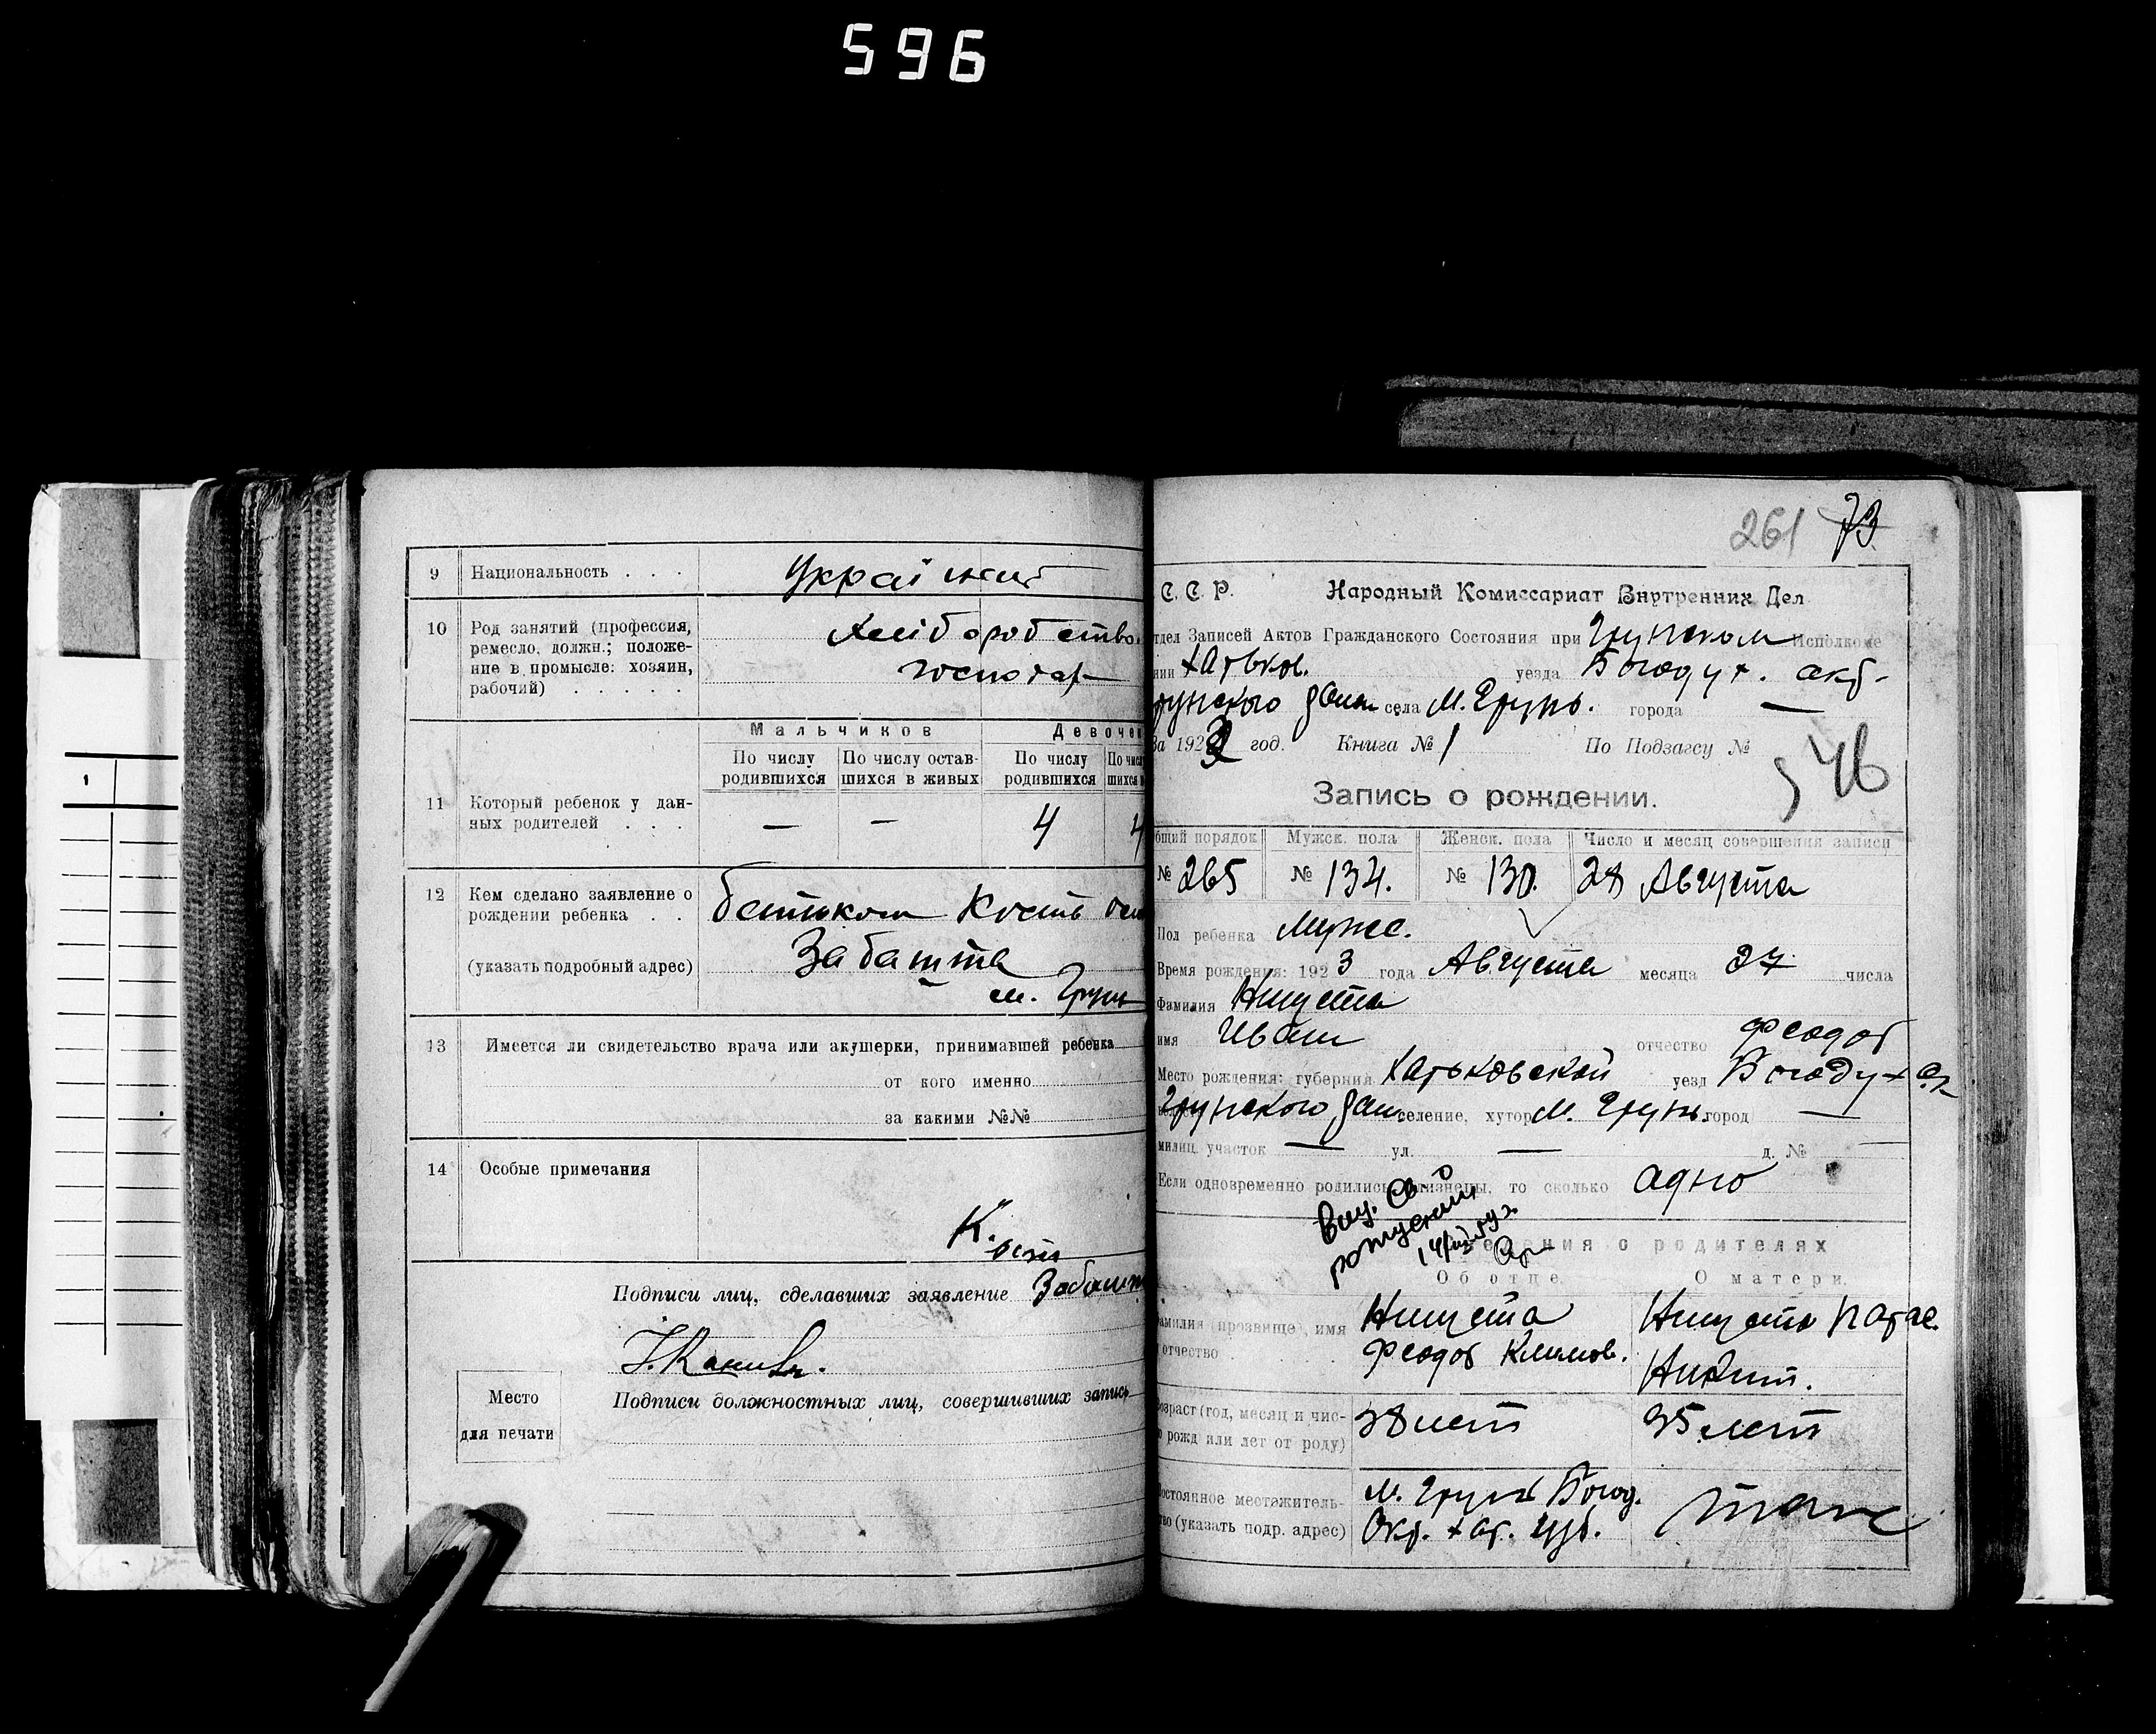 596
9 Национальность . . . Украінит
10 Род занятий (профессия, ремесло, должн.; положение в промысле: хозяин, рабочий) . . . . .
Хліборобство.
господар
Мальчиков Девочек
По числу родившихся По числу оставшихся в живых По числу родившихся
11 Который ребенок у данных родителей . . . — — 4 4
12 Кем сделано заявление о рождении ребенка . . батьком Кость
(указать подробный адрес) Забашта
м. Грунь
13 Имеется ли свидетельство врача или акушерки, принимавшей ребенка
от кого именно
за какими №№
14 Особые примечания
К.
Подписи лиц, сделавших заявление Забашт
Место для печати
Подписи должностных лиц, совершивших запись
1
261 73
С. С. Р. Народный Комиссариат Внутренних Дел
тдел Записей Актов Гражданского Состояния при Грунском Исполкоме
нии Харьков. уезда Богодух. окр.
рунского села М. Грунь. города —
За 1923 год. Книга № 1 По Подзагсу №
546
Запись о рождении.
бщий порядок Мужск. пола Женск. пола Число и месяц совершения записи
№ 265 № 134. № 130. 28 Августа
Пол ребенка Мужс.
Время рождения: 1923 года Августа месяца 27 числа
Фамилия
имя Иван отчество Феодот
Место рождения: губерния Харьковской уезд Богодух ок
Грунского селение, хутор М. Грунь. город —
милиц. участок — ул. — д. №
Если одновременно родились близнецы, то сколько одно
Сведения о родителях
Об отце. О матери.
амилия (прозвище), имя
отчество Феодот Климов.
Никит.
озраст (год, месяц и чис-
о рожд или лет от роду) 38 лет 35 лет
остоянное местажитель-
во (указать подр. адрес) М. Грунь Богод.
Окр. Хар. губ.